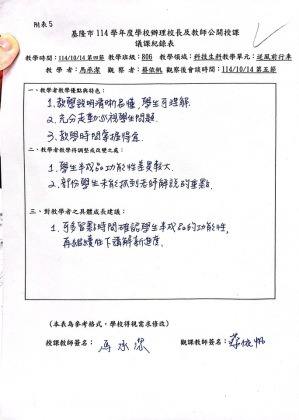 附表 5
基隆市 114 學年度學校辦理校長及教師公開授課
議課紀錄表
教學時間：114/10/14 第四節 教學班級：806 教學領域：科技生科 教學單元：逆風前行車
教 學 者：馬承潔 觀 察 者：蔡依帆 觀察後會談時間：114/10/14 第五節
一、教學者教學優點與特色：
1. 教學說明清晰易懂，學生可理解.
2. 充分走動巡視學生問題.
3. 教學時間掌握得宜.
二、教學者教學待調整或改變之處：
1. 學生半成品功能性差異較大.
2. 部份學生未能抓到老師解說的重點.
三、對教學者之具體成長建議：
1. 可多留點時間確認學生半成品的功能性，
再繼續往下講解新進度.
（本表為參考格式，學校得視需求修改）
授課教師簽名：馬承潔 觀課教師簽名：蔡依帆